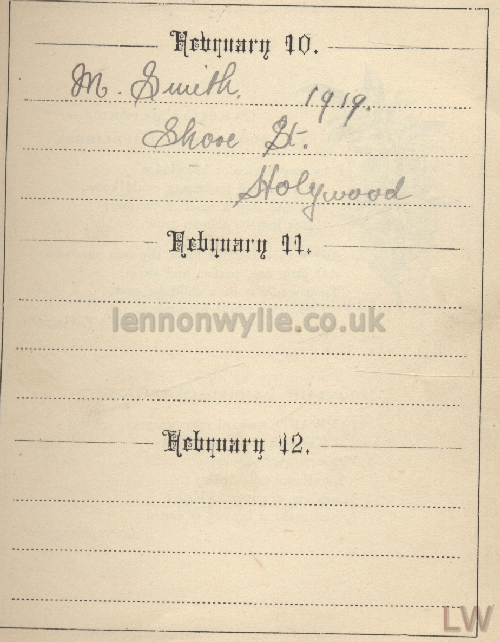 February 10.
M. Smith. 1919.
Shore St.
Holywood
February 11.
lennonwylie.co.uk
February 12.
LW